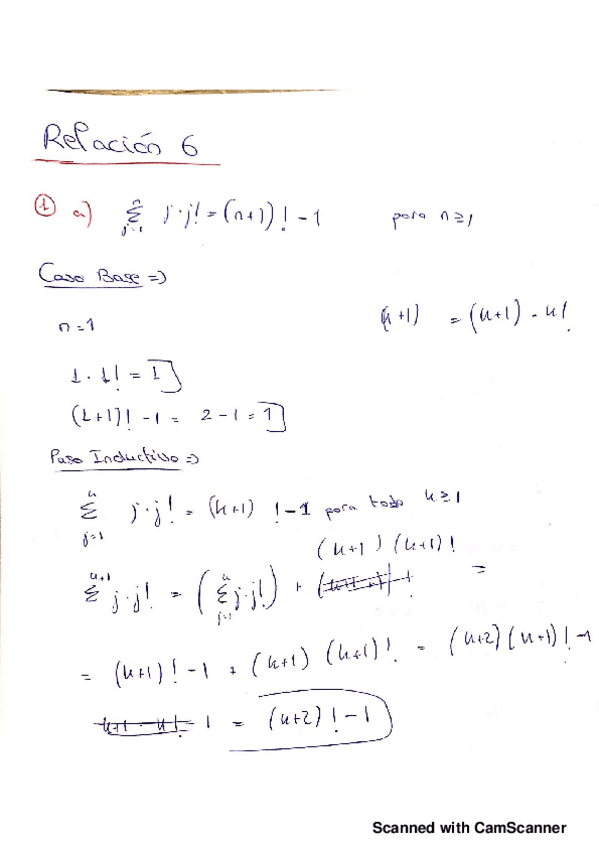 Relación 6
① a) n Σ j=1 j·j! = (n+1)! - 1 para n ≥ 1
Caso Base =>
n = 1
(k+1) = (k+1) · k!
1 · 1! = 1
(1+1)! - 1 = 2 - 1 = 1
Paso Inductivo =>
k Σ j=1 j·j! = (k+1)! - 1 para todo k ≥ 1
(k+1)(k+1)!
k+1 Σ j·j! = (k Σ j=1 j·j!) + =
= (k+1)! - 1 + (k+1)(k+1)! = (k+2)(k+1)! - 1
- 1 = (k+2)! - 1
Scanned with CamScanner